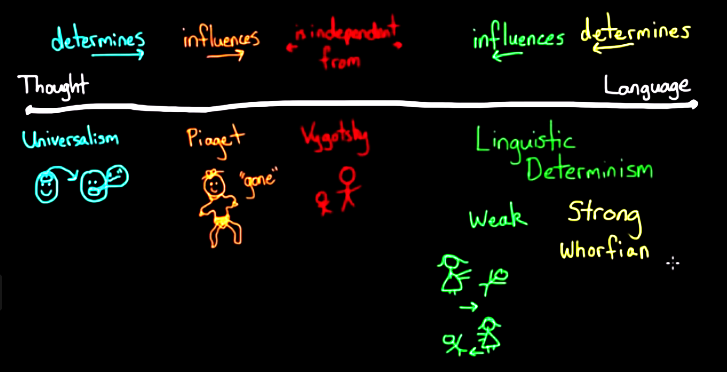 determines
influences
is independent
from
influences
determines
Thought
Language
Universalism
Piaget
"gone"
Vygotsky
Linguistic
Determinism
Weak
Strong
Whorfian